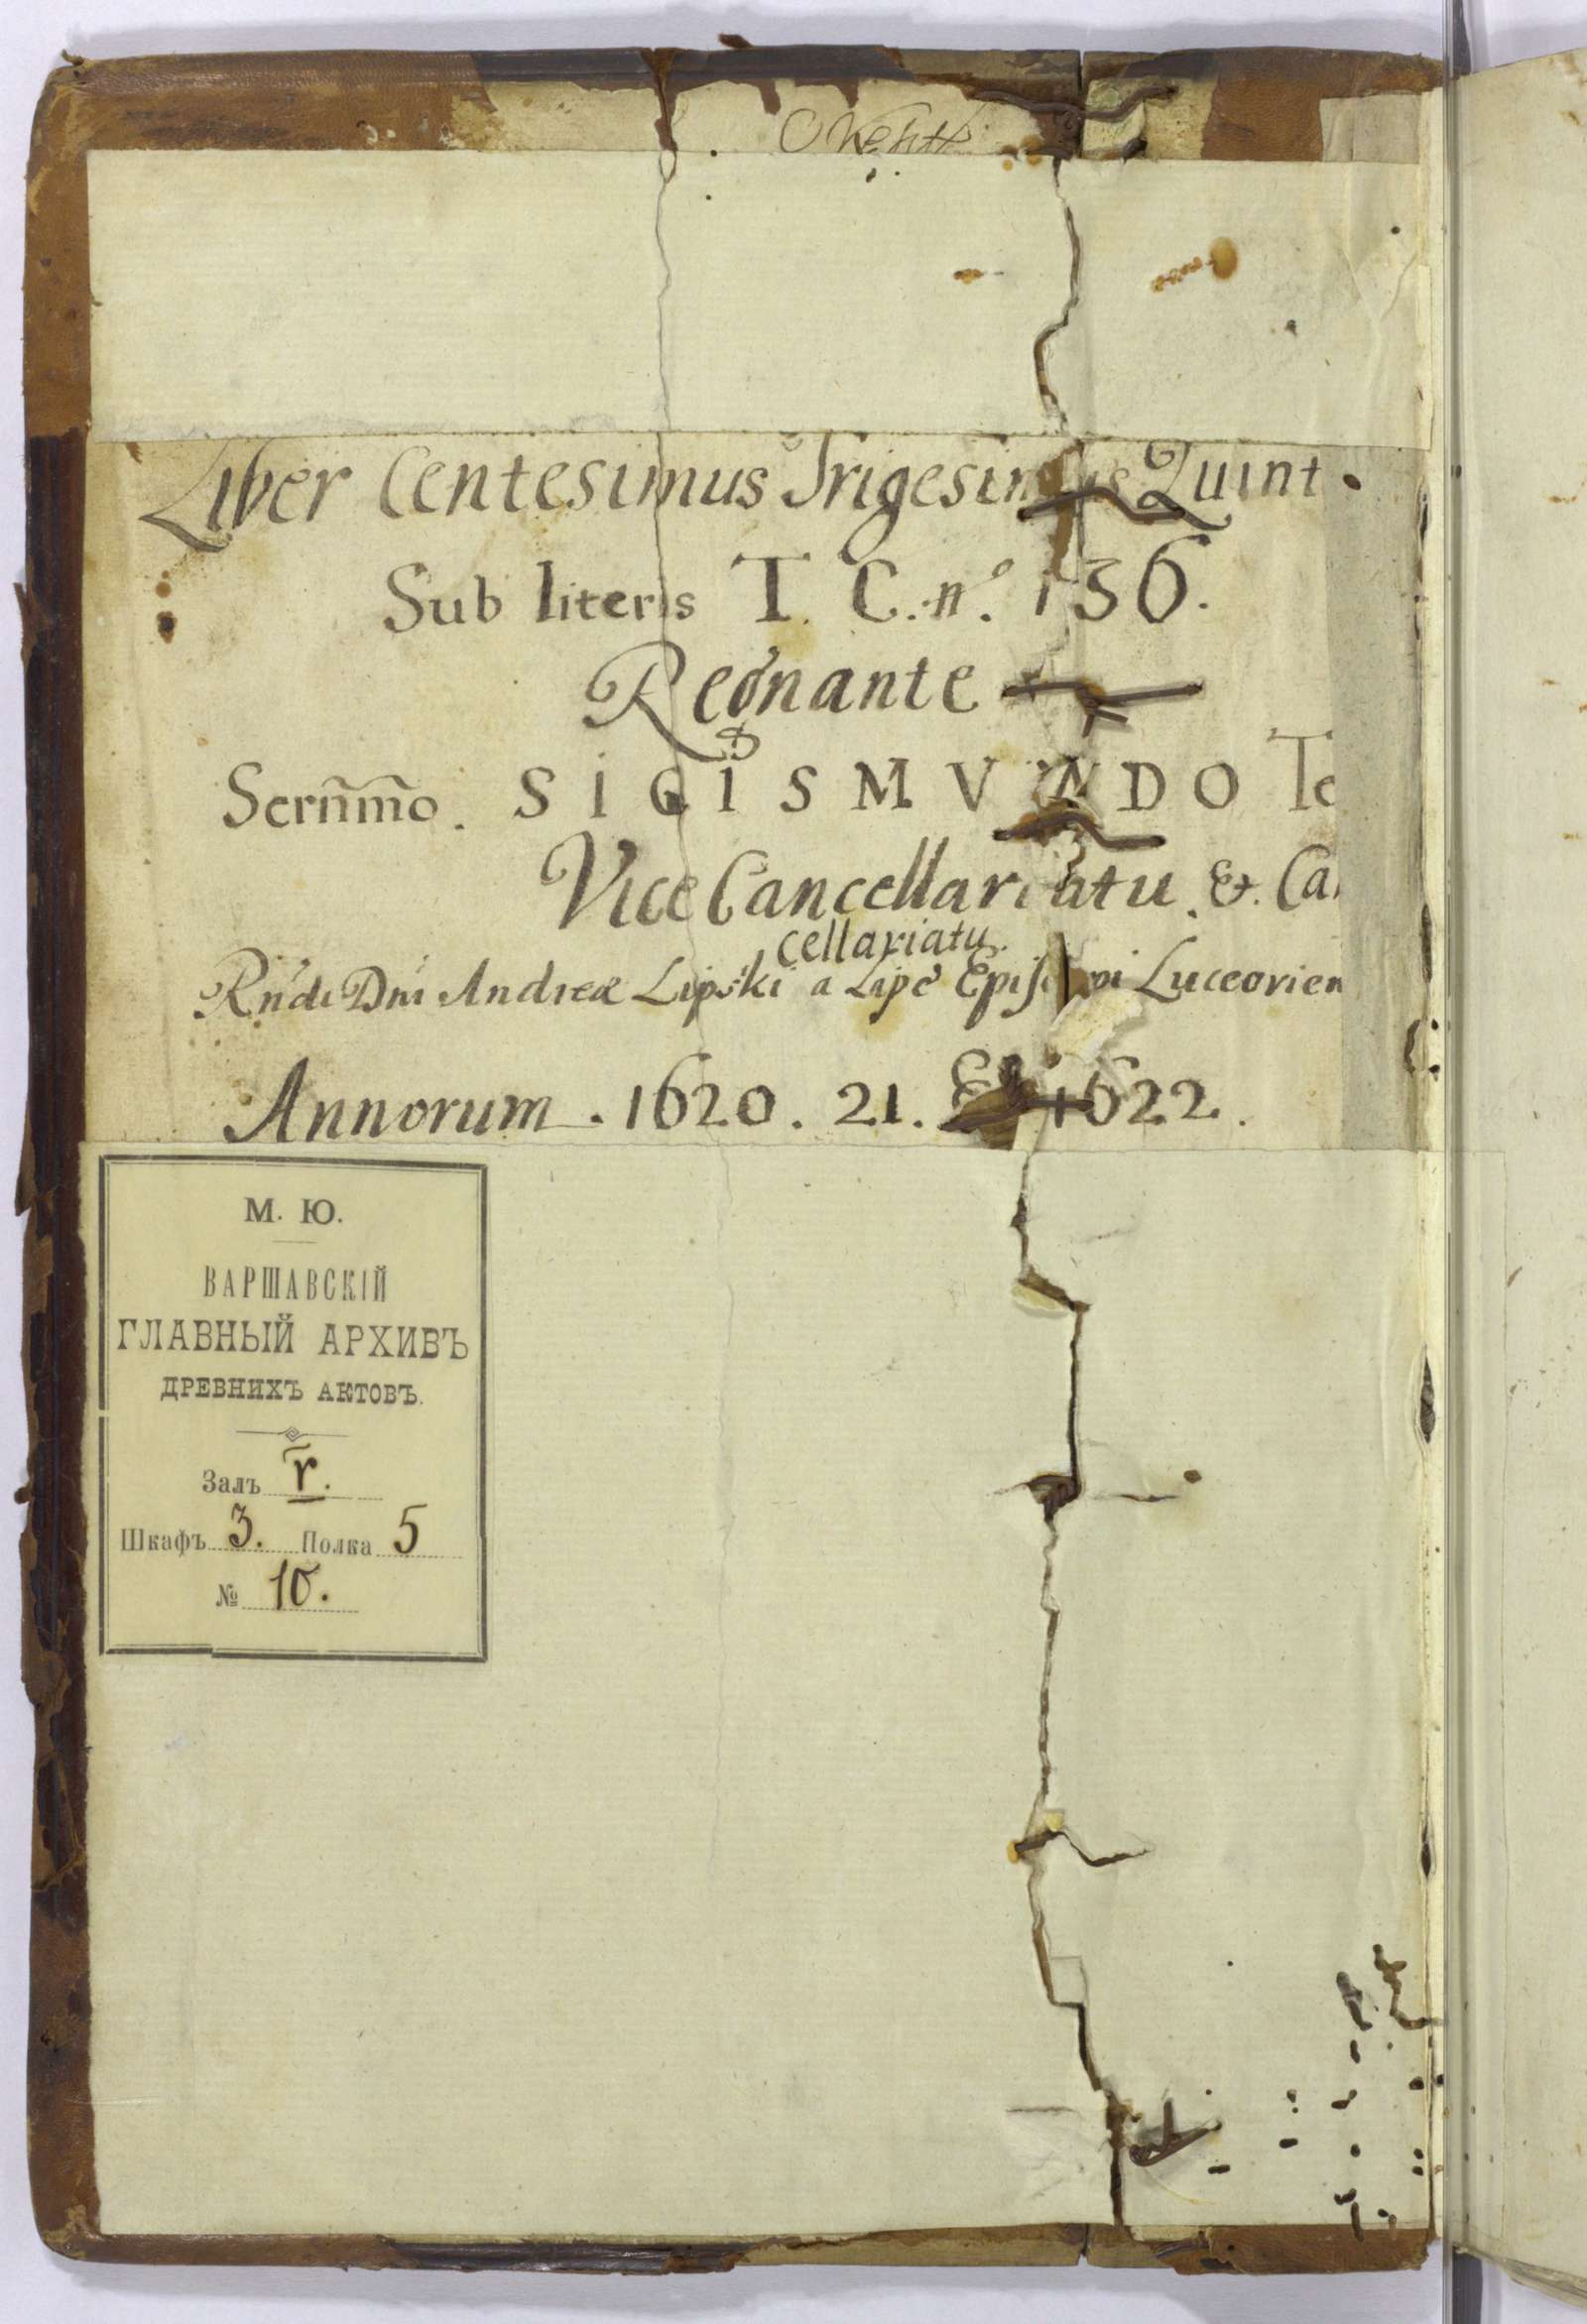 Liber Centesimus Trigesimus Quint
Sub literis T. C. nº. 136.
Regnante
Serñmo. SIGISMVNDO Te
Vice Cancellariatu. Et. Can
cellariatu.
Rndi Dni Andreæ Lipski a Lipe Episcopi Luceorien
Annorum. 1620. 21. Et 1622.
М. Ю.
ВАРШАВСКІЙ
ГЛАВНЫЙ АРХИВЪ
ДРЕВНИХЪ АКТОВЪ.
Залъ r.
Шкафъ 3. Полка 5
№ 10.